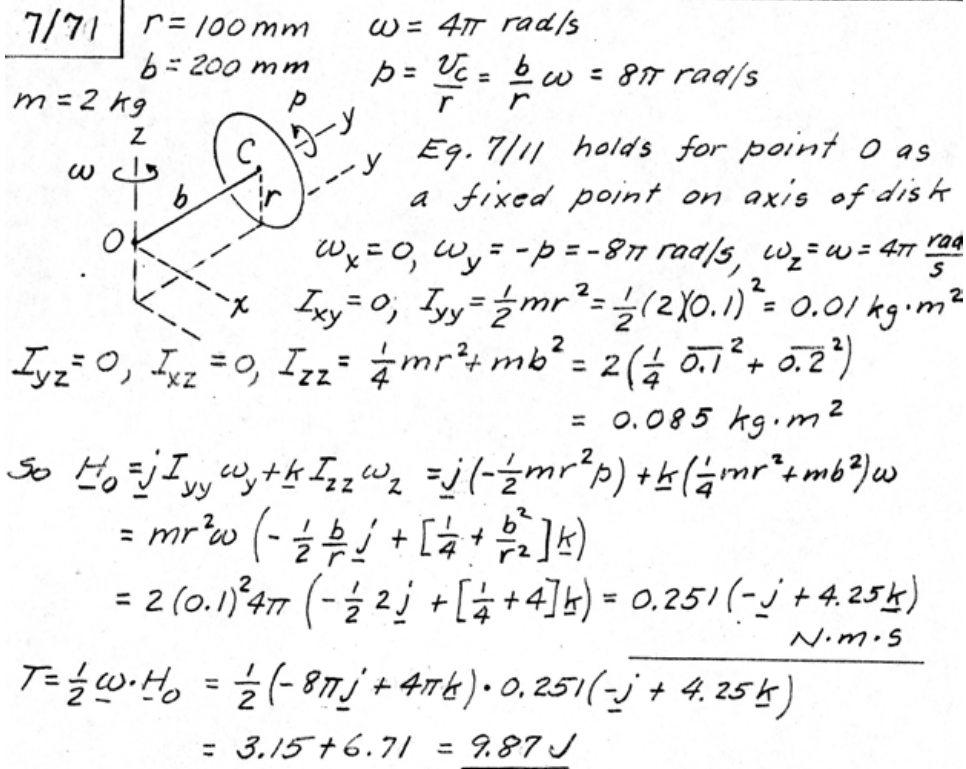 7/71 r = 100 mm ω = 4π rad/s
b = 200 mm p = v_C/r = b/r ω = 8π rad/s
m = 2 kg
z
p
y
C
y
ω
b
r
O
x
Eq. 7/11 holds for point O as
a fixed point on axis of disk
ω_x = 0, ω_y = -p = -8π rad/s, ω_z = ω = 4π rad/s
I_xy = 0, I_yy = 1/2 mr² = 1/2 (2)(0.1)² = 0.01 kg·m²
I_yz = 0, I_xz = 0, I_zz = 1/4 mr² + mb² = 2(1/4 0.1² + 0.2²)
= 0.085 kg·m²
So H_O = j I_yy ω_y + k I_zz ω_z = j(-1/2 mr²p) + k(1/4 mr² + mb²)ω
= mr²ω (-1/2 b/r j + [1/4 + b²/r²]k)
= 2(0.1)²4π (-1/2 2j + [1/4 + 4]k) = 0.251(-j + 4.25k)
N·m·s
T = 1/2 ω·H_O = 1/2 (-8πj + 4πk)·0.251(-j + 4.25k)
= 3.15 + 6.71 = 9.87 J